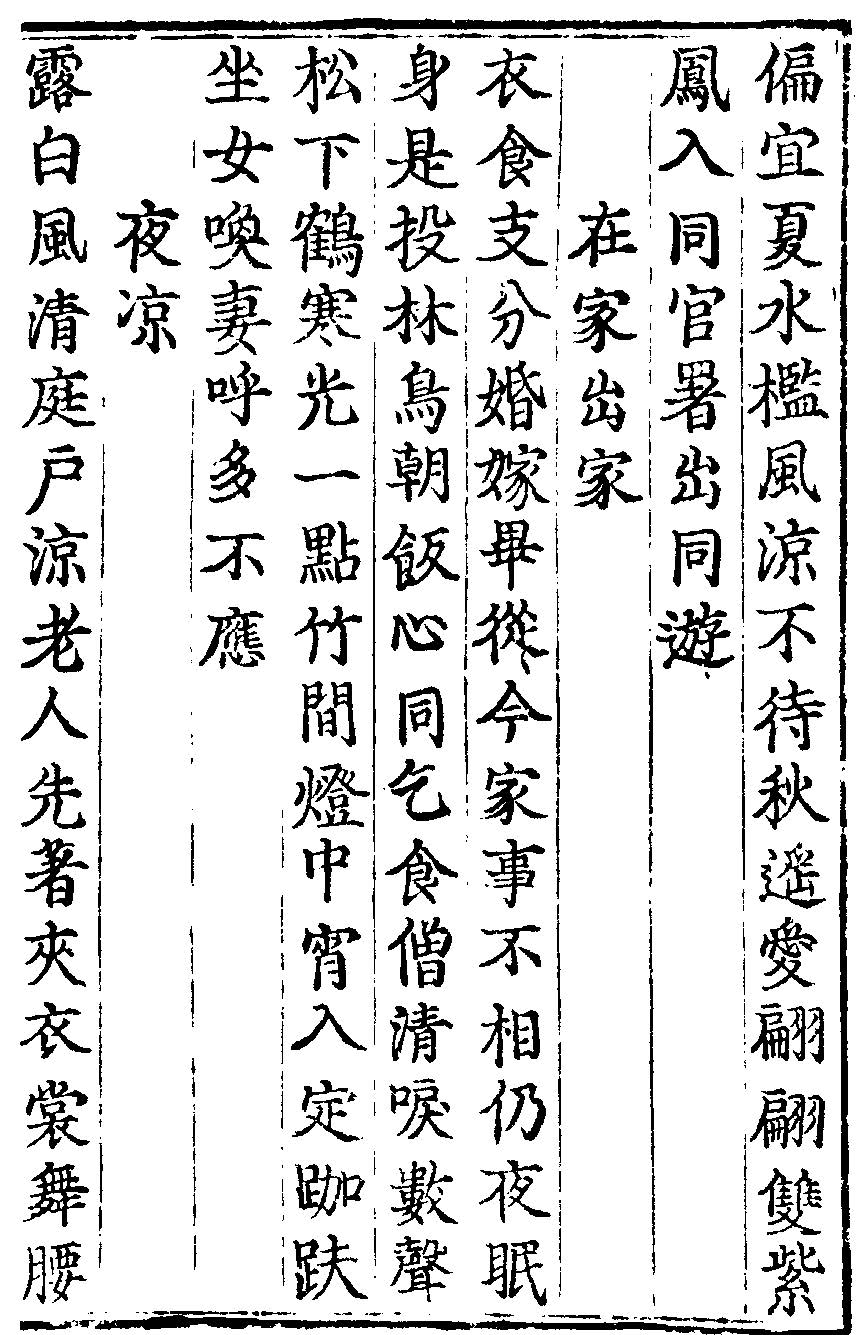 偏宜夏水檻風涼不待秋遥愛翩翩雙紫
鳳入同官署出同遊
在家出家
衣食支分婚嫁畢從今家事不相仍夜眠
身是投林鳥朝飯心同乞食僧清唳數聲
松下鶴寒光一點竹間燈中宵入定跏趺
坐女喚妻呼多不應
夜凉
露白風清庭戶涼老人先著夾衣裳舞腰